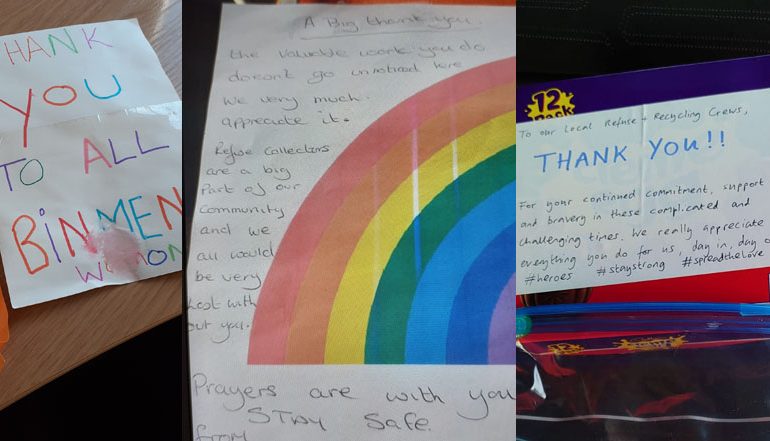 THANK
YOU
TO ALL
BINMEN
WOMON
A Big thank you.
the valuable work you do
doesn't go unnoticed here
we very much
appreciate it.
Refuse collectors
are a big
part of our
community
and we
all would
be very
lost with
out you.
Prayers are with you
STAY Safe.
from
12
Pack
To our Local Refuse + Recycling Crews,
THANK YOU!!
For your continued commitment, support
and bravery in these complicated and
challenging times. We really appreciate
everything you do for us, day in, day o
#heroes #staystrong #spreadthelove